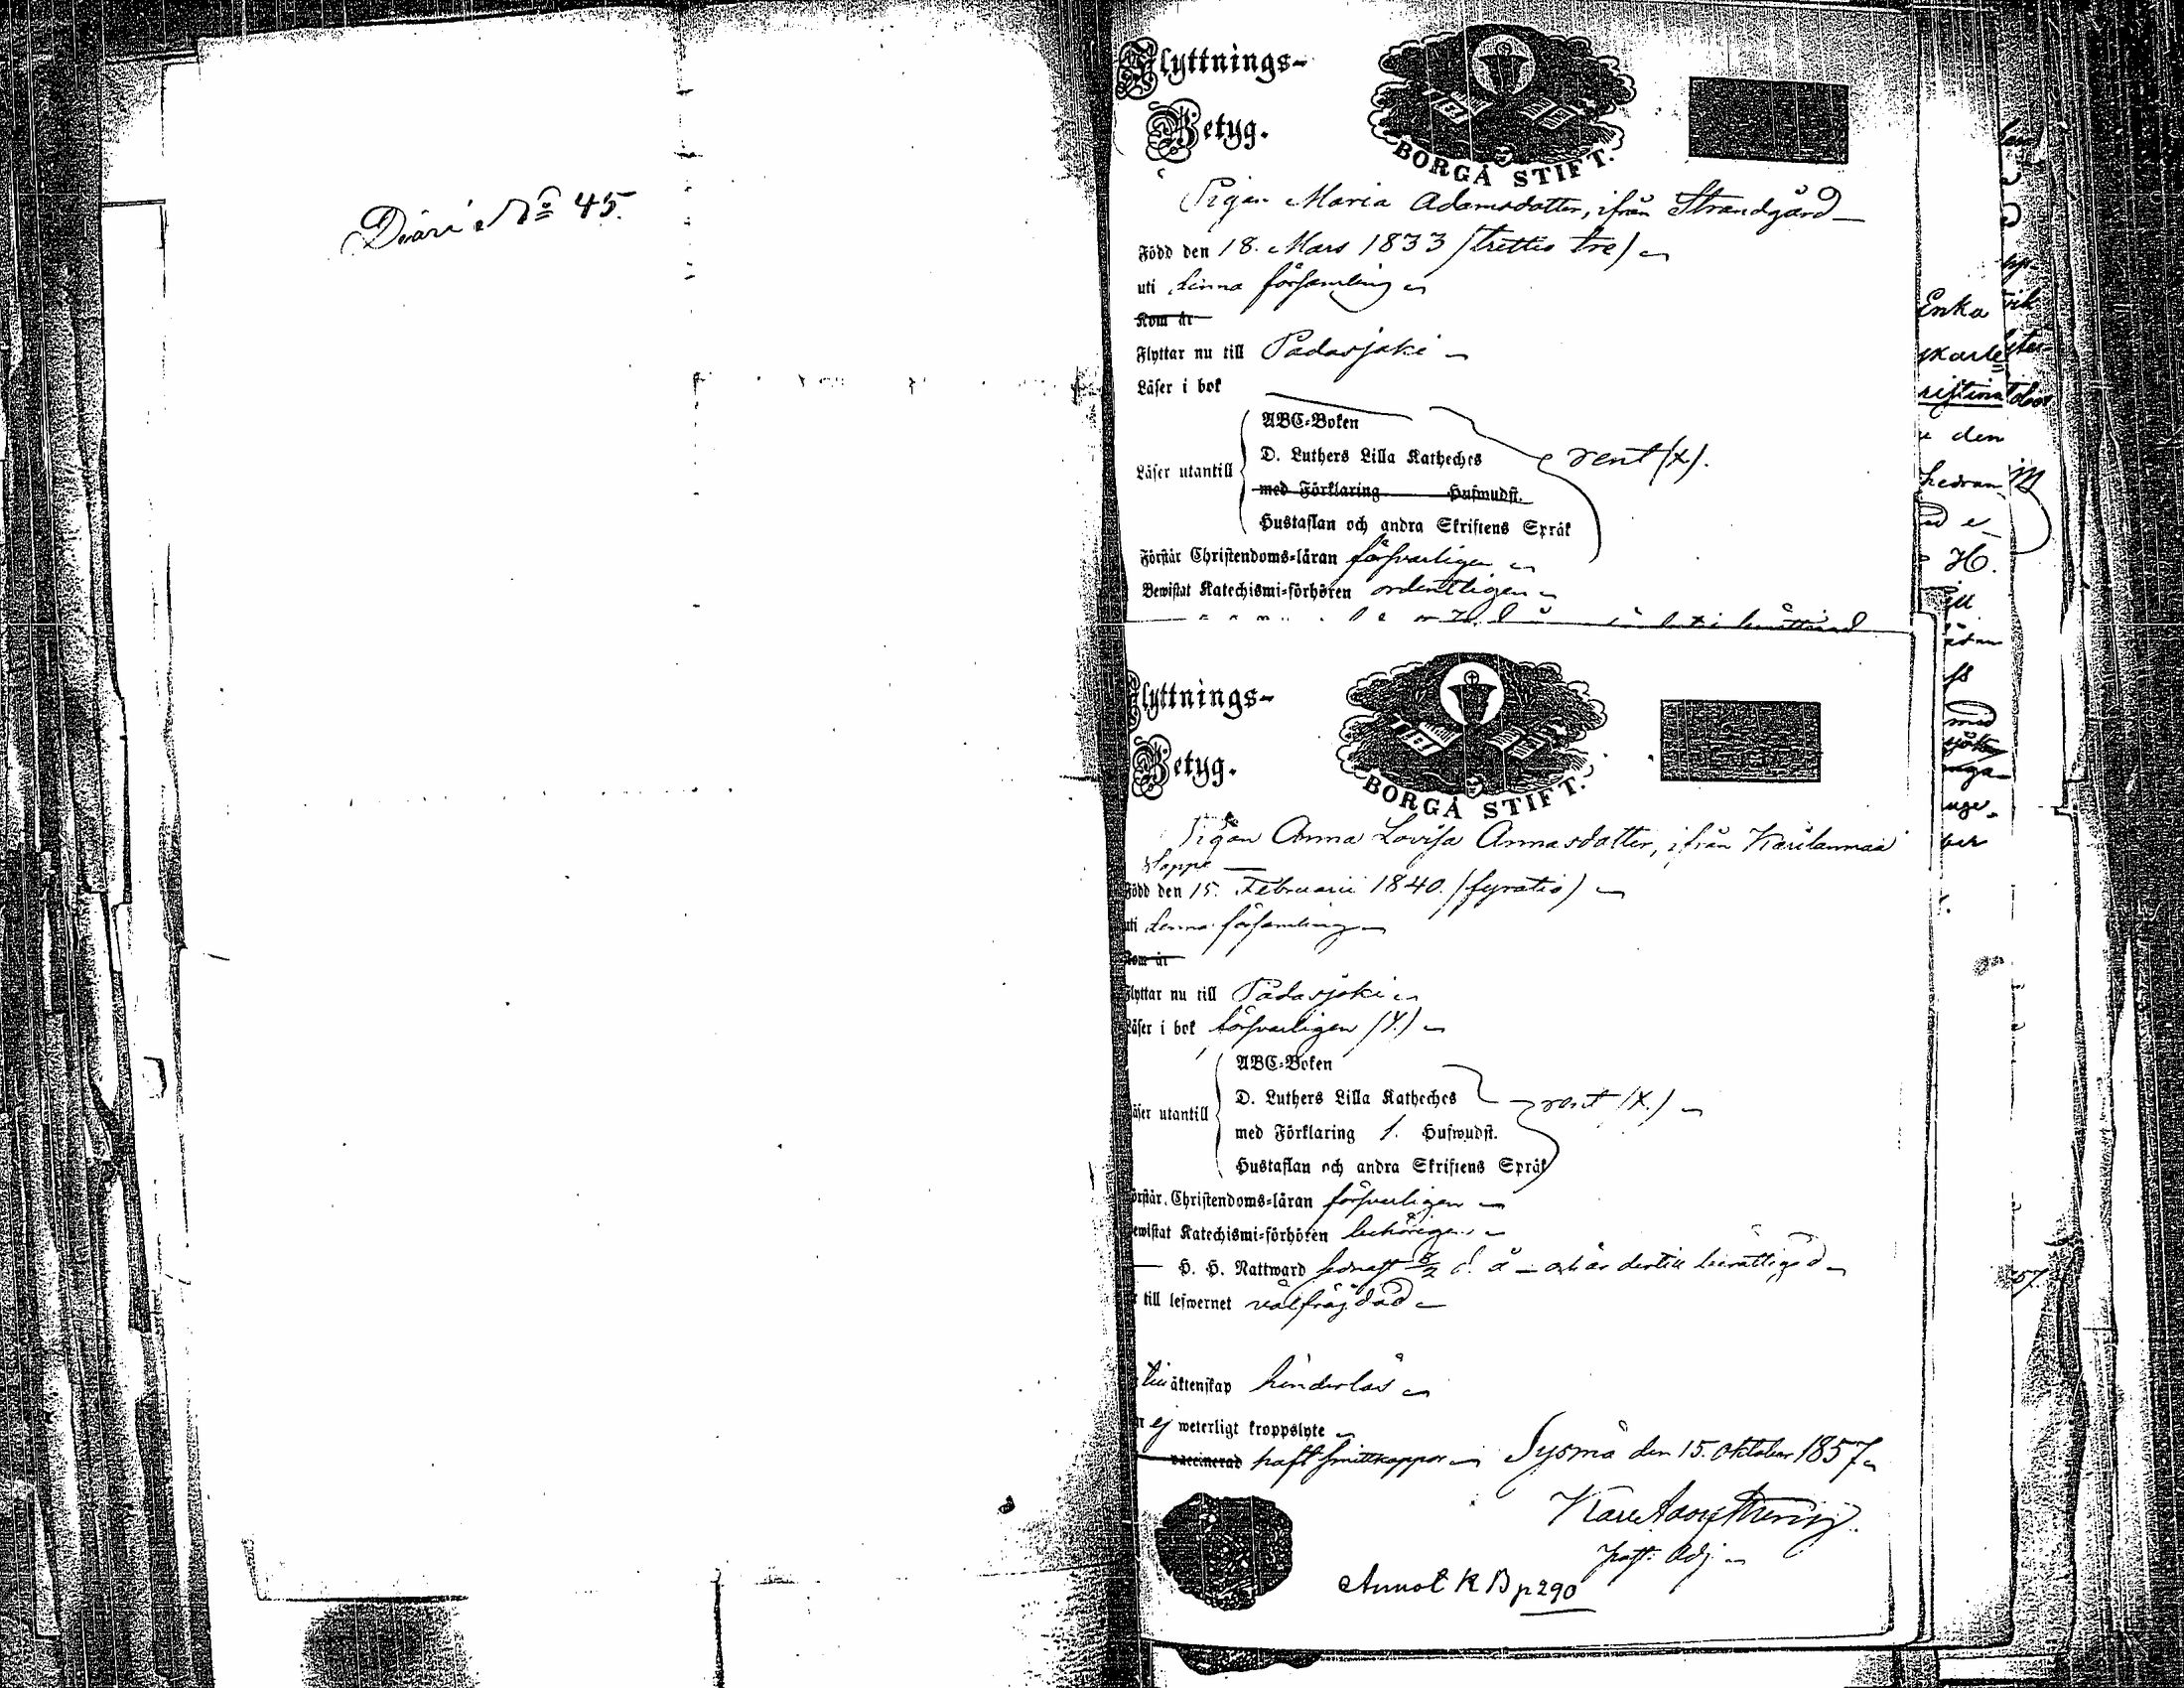 Diari No 45.
Flyttnings-
Betyg.
BORGÅ STIFT.
Pigan Maria Adamsdotter, ifrån Strandgård
Född den 18. Mars 1833 (trettio tre)
uti denna församling
Kom år
Flyttar nu till Padasjoki
Läser i bok
ABC-Boken
D. Luthers Lilla Katheches
Läser utantill
rent (x).
med Förklaring Hufwudst.
Hustaflan och andra Skriftens Språk
Förstår Christendoms-läran försvarligen
Bewistat Katechismi-förhören ordentligen
Flyttnings-
Betyg.
BORGÅ STIFT.
Pigan Anna Lovisa Annasdotter, ifrån Karilanmaa
Född den 15. Februarii 1840. (fyratio)
uti denna församling
Kom år
Flyttar nu till Padasjoki
Läser i bok försvarligen
ABC-Boken
D. Luthers Lilla Katheches
äser utantill
rent (x.)
med Förklaring 1. Hufwudst.
Hustaflan och andra Skriftens Språk
örstår Christendoms-läran försvarligen
ewistat Katechismi-förhören behörigen
H. H. Nattward och är dertill berättigad
till lefwernet välfräjdad
till äktenskap hinderlös
ej weterligt kroppslyte
vaccinerad haft smittkoppor
Sysmä den 15. Oktober 1857
Annot K B p 290
Enka
den
H.